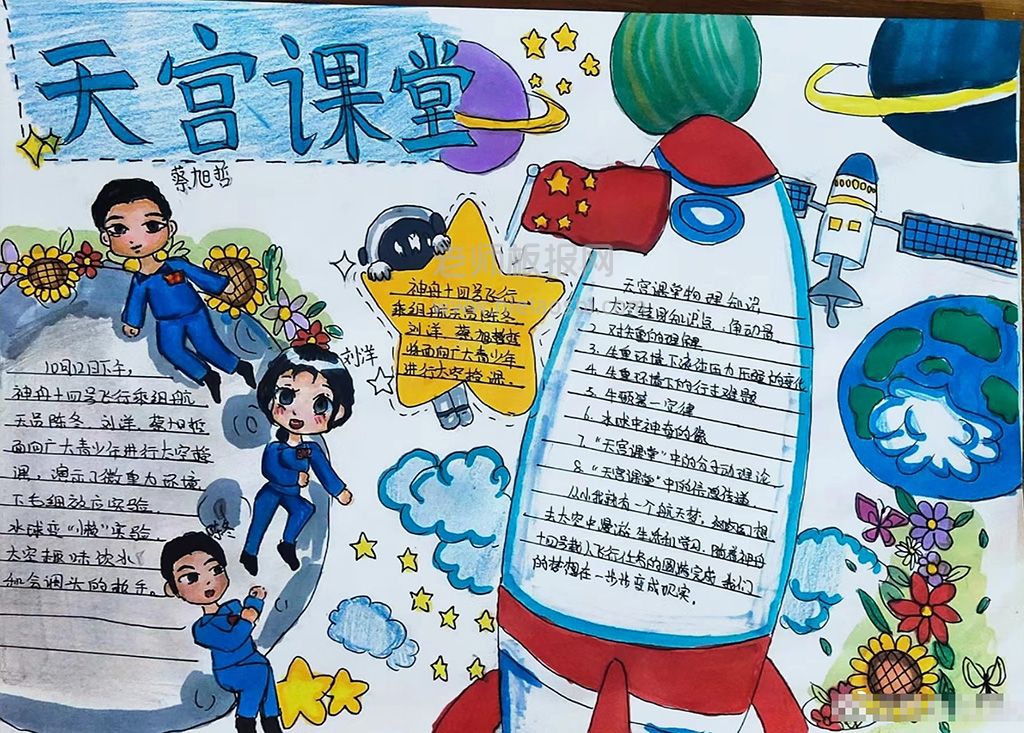 天宫课堂
蔡旭哲
刘洋
陈冬
10月12日下午,
神舟十四号飞行乘组航
天员陈冬 刘洋 蔡旭哲
面向广大青少年进行太空授
课,演示了微重力环境
下毛细效应实验
水球变“懒”实验
太空趣味饮水
和会调头的扳手。
神舟十四号飞行
乘组航天员陈冬
刘洋 蔡旭哲
将面向广大青少年
进行太空授课。
老师板报网
天宫课堂物理知识
1.太空转身知识点:角动量
2.对失重的理解
3.失重环境下液体压力压强的变化
4.失重环境下的行走难题
5.牛顿第一定律
6.水球中神奇的
7.“天宫课堂”中的分子动理论
8.“天宫课堂”中的信息传递
从小我就有一个航天梦,幻想
去太空中漫游 生活和学习,随着神舟
十四号载人飞行任务的圆满完成,我们
的梦想在一步步变成现实。